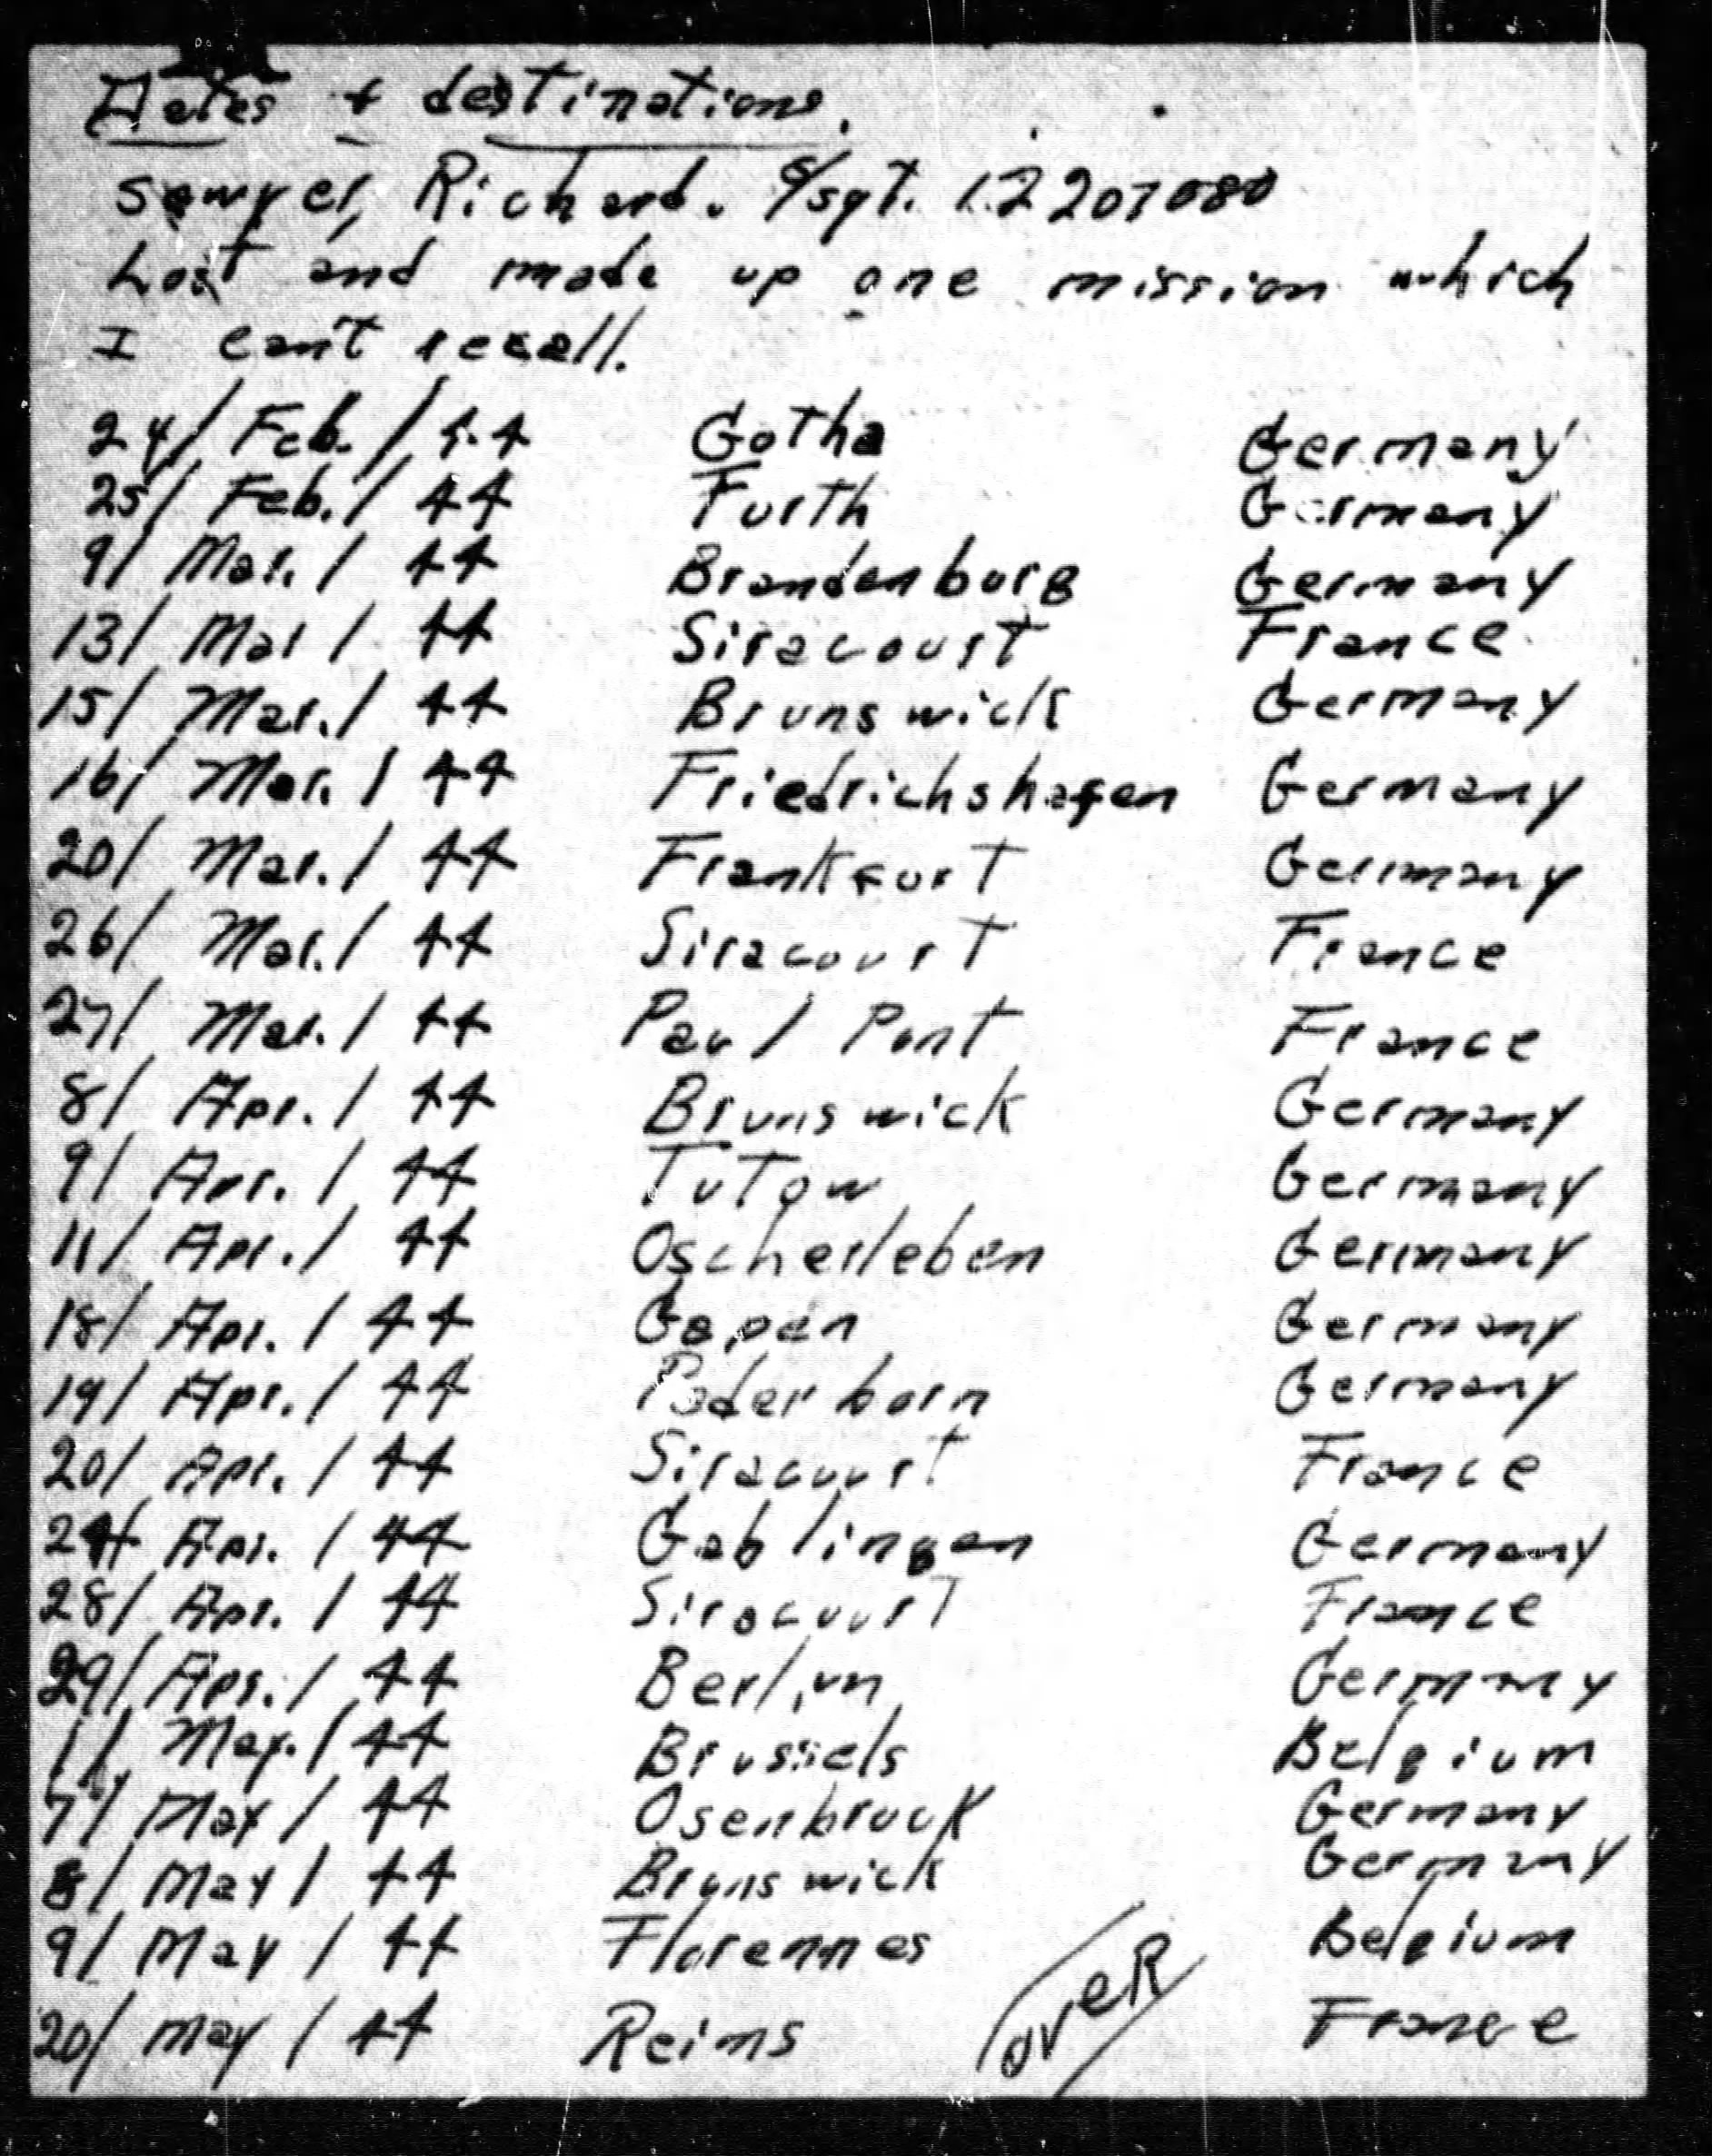 Dates + destinations.
Sawyer, Richard. S/sgt. 12207080
Lost and made up one mission which
I can't recall.
24/ Feb. / 44 Gotha Germany
25/ Feb. / 44 Furth Germany
9/ Mar. / 44 Brandenburg Germany
13/ Mar / 44 Siracourt France
15/ Mar. / 44 Brunswick Germany
16/ Mar. / 44 Friedrichshafen Germany
20/ Mar. / 44 Frankfurt Germany
26/ Mar. / 44 Siracourt France
27/ Mar. / 44 Pau / Pont France
8/ Apr. / 44 Brunswick Germany
9/ Apr. / 44 Tutow Germany
11/ Apr. / 44 Oscherleben Germany
18/ Apr. / 44 Gapen Germany
19/ Apr. / 44 Paderborn Germany
20/ Apr. / 44 Siracourt France
24/ Apr. / 44 Gablingen Germany
28/ Apr. / 44 Siracourt France
29/ Apr. / 44 Berlin Germany
1/ May. / 44 Brussels Belgium
7/ May / 44 Osenbruck Germany
8/ May / 44 Brunswick Germany
9/ May / 44 Florennes Belgium
20/ May / 44 Reims France
OVER